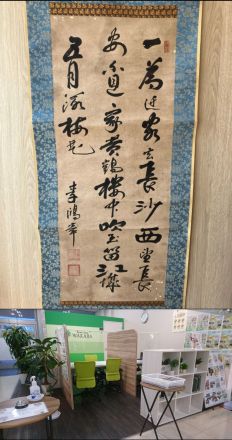 一為遷客去長沙西望長
安不見家黃鶴樓中吹玉笛江城
五月落梅花
李鴻章
WAKABA